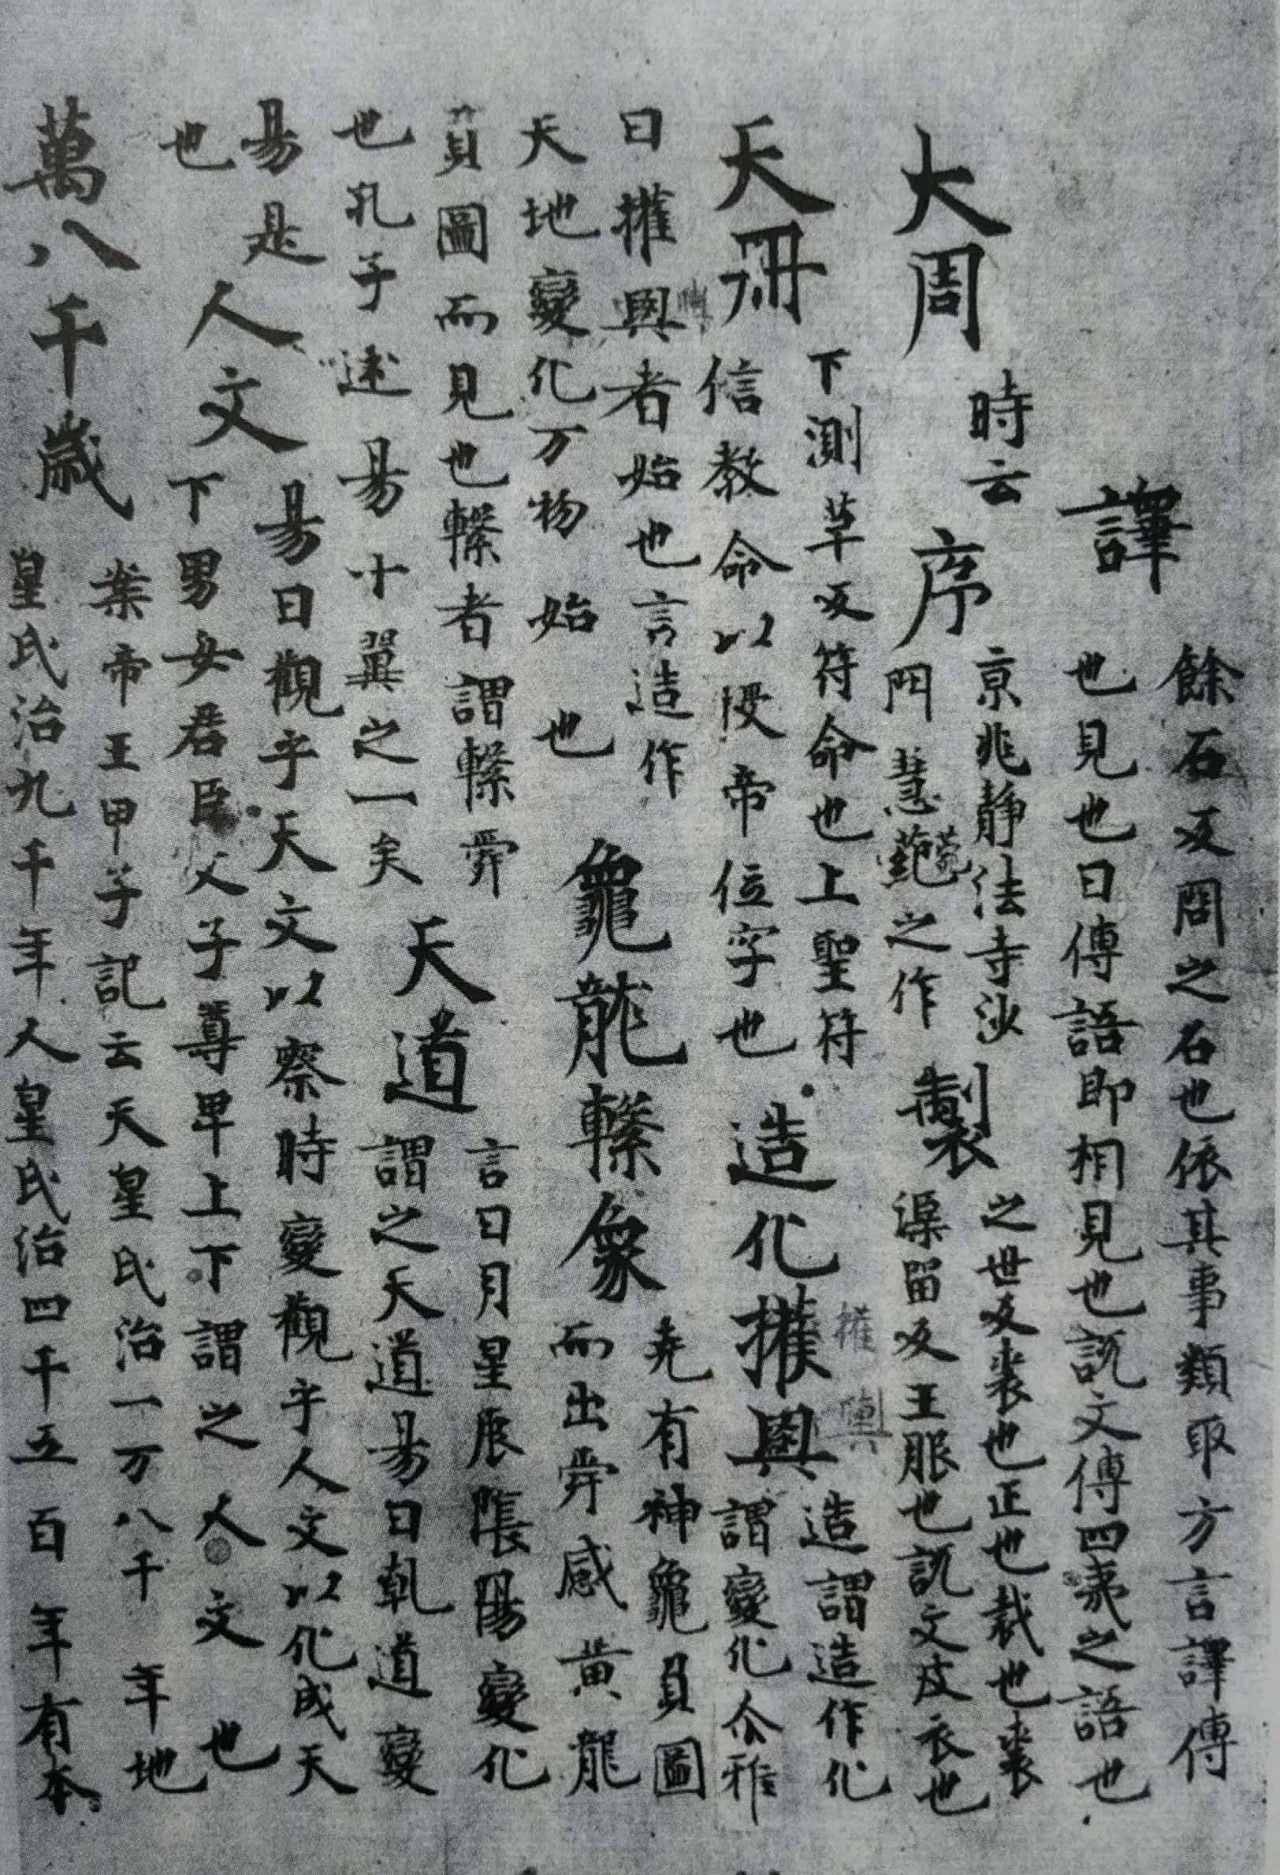 譯
餘石反問之石也依其事類取方言譯傳
也見也曰傳語即相見也説文傳四夷之語也
大周
時云
序
京兆靜法寺沙
門慧菀之作
製
之世反裳也正也裁也裳
渠留反王服也説文皮衣也
天冊
下測草反符命也上聖符
信教命以授帝位字也
造化權輿
權輿
造謂造作化
謂變化尒雅
曰權輿者始也言造作
天地變化万物始也
龜龍繫象
堯有神龜負圖
而出舜感黄龍
負圖而見也繫者謂繫舜
也孔子述易十翼之一矣
天道
言日月星辰陰陽變化
謂之天道易曰乾道變
易是
也
人文
易曰觀乎天文以察時變觀乎人文以化成天
下男女君臣父子尊卑上下謂之人文也
萬八千歲
案帝王甲子記云天皇氏治一万八千年地
皇氏治九千年人皇氏治四千五百年有本